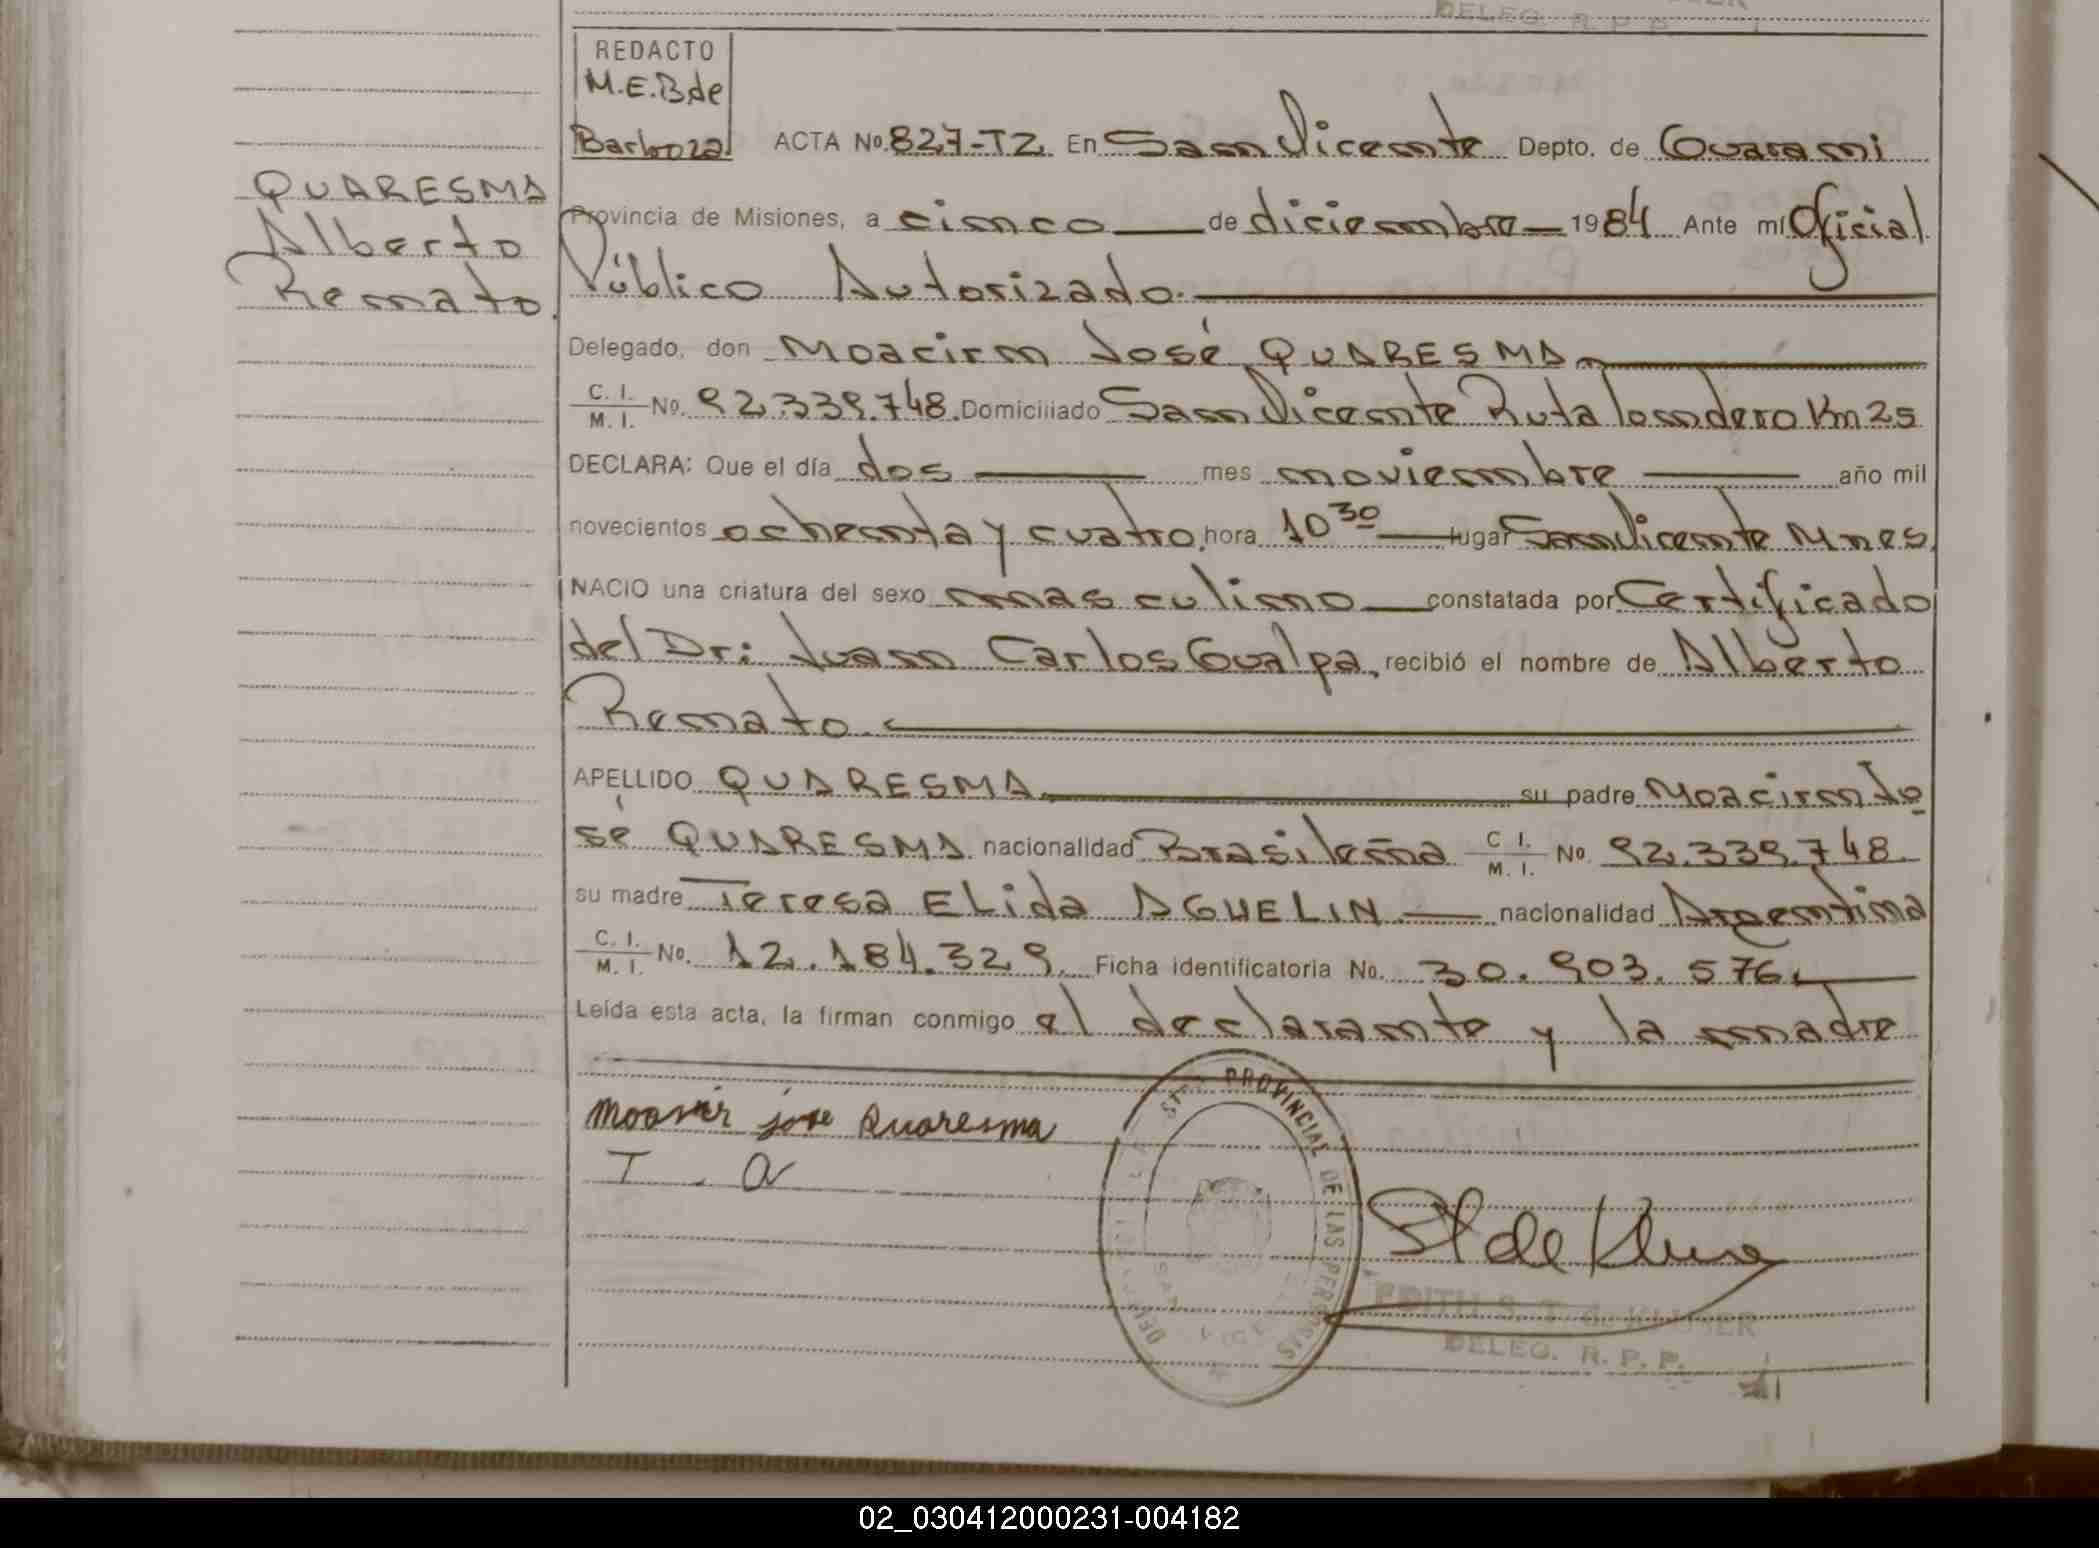 DELEG. R. P. P.
REDACTO
M.E.B de
Barboza
ACTA No. 827-TZ. En San Vicente Depto. de Guarani
QUARESMA
Alberto
Renato.
Provincia de Misiones, a cinco de diciembre 1984 Ante mí Oficial
Público Autorizado.
Delegado, don Moacirm José QUARESMA
C. I. / M. I. No. 92.339.748. Domiciliado San Vicente Ruta Londero Km 25
DECLARA: Que el día dos mes noviembre año mil
novecientos ochenta y cuatro, hora 10 30 lugar San Vicente Mnes.
NACIO una criatura del sexo masculino constatada por Certificado
del Dr: Juan Carlos Gualpa, recibió el nombre de Alberto
Renato.
APELLIDO QUARESMA su padre Moacirm Jo
sé QUARESMA nacionalidad Brasileña C I. / M. I. No. 92.339.748.
su madre Teresa ELida AGUELIN nacionalidad Argentina
C. I. / M. I. No. 12.184.329. Ficha identificatoria No. 30.903.576.
Leída esta acta, la firman conmigo el declarante y la madre
Moasir jose Quaresma
T. a
PROVINCIAL DE LAS PERSONAS
EDITH S. T. de KLUSER
DELEG. R. P. P.
02_030412000231-004182